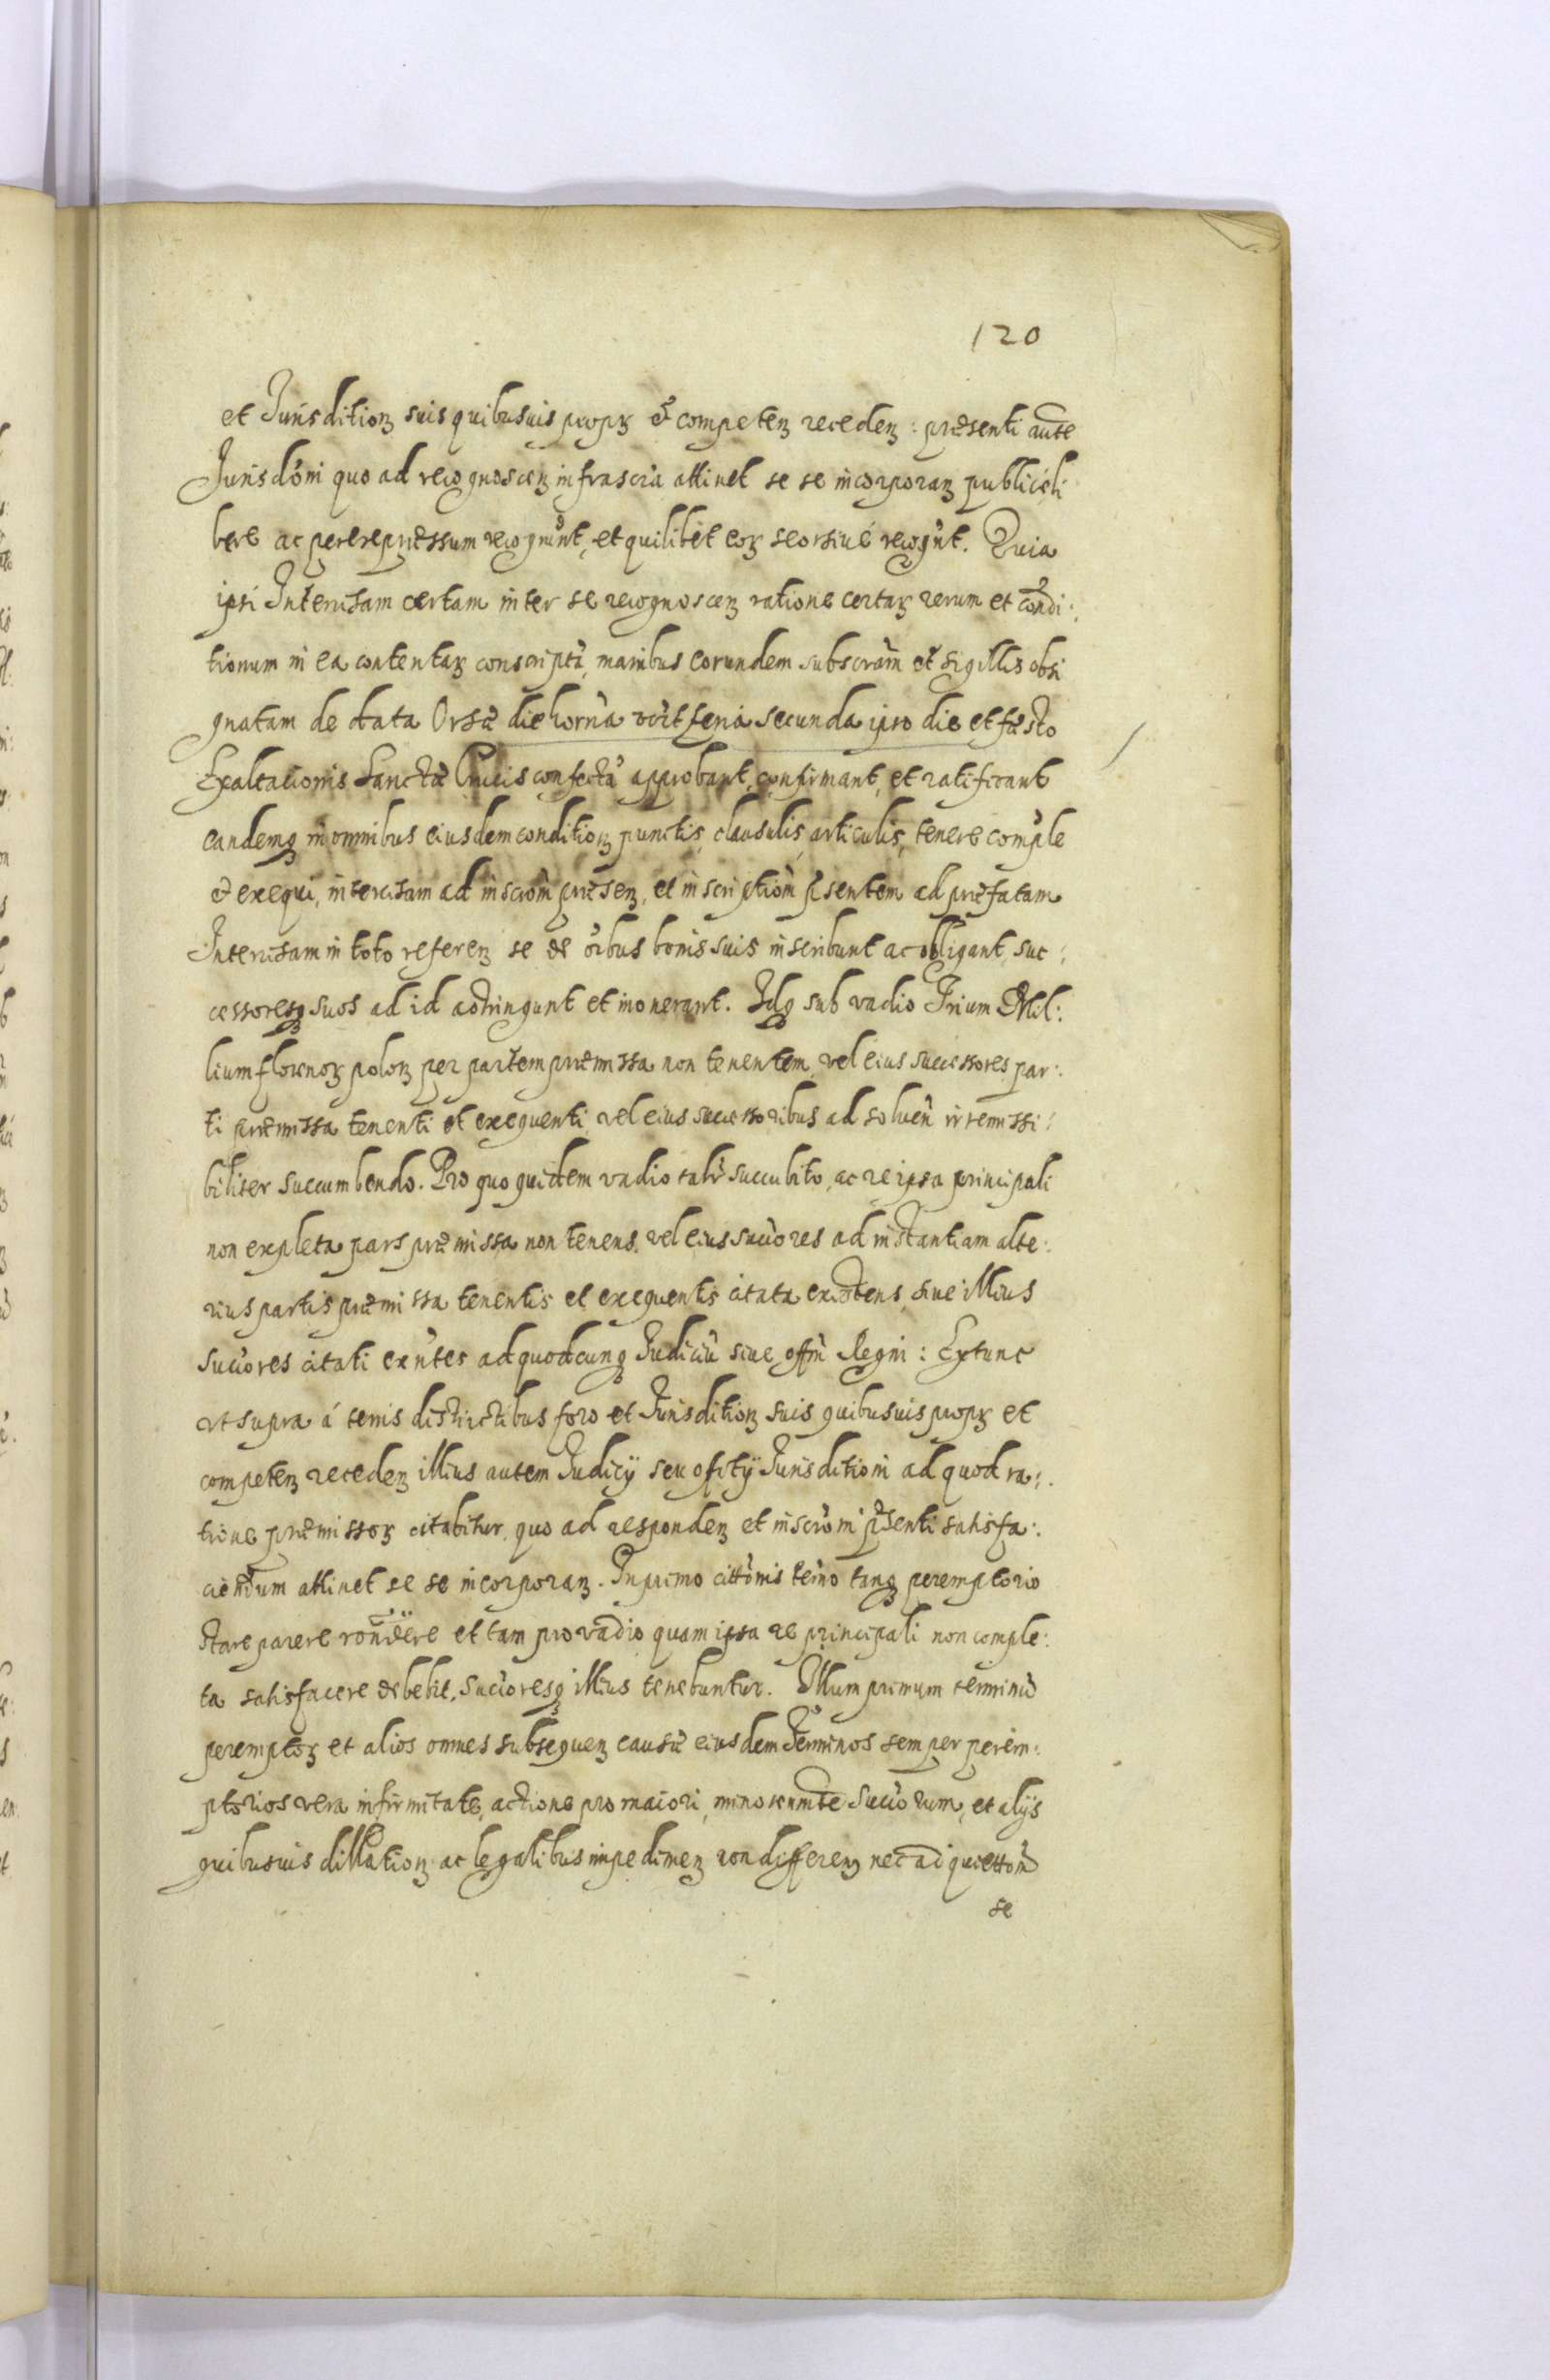 120
et Jurisdition suis quibusuis propꝫ et competenꝫ recedenꝫ : præsenti autē
Jurisdōni quo ad recognoscenꝫ infrascrā attinet se se incorporanꝫ publicè li
bere ac per expressum recognūnt, et quilibèt eorꝫ seorsiué recognt. Quia
ipsi Intercisam certam inter se recognoscenꝫ ratione certarꝫ rerum et condi:
tionum in ea contentarꝫ conscriptā, manibus eorundem subscrām et sigillis obsi
gnatam de data Orsæ die hornà feria secunda ipso die et fæsto
Exaltationis Sanctæ Crucis confectā approbant, confirmant, et ratificant
eandemqꝫ in omnibus eiusdem conditionꝫ punctis, clausulis, articulis, tenere comple
et exequi, intercisam ad inscrōm præsenꝫ, et inscriptiōn pr̄sentem ad præfatam
Intercisam in toto referenꝫ se de ōibus bonis suis inscribunt ac obligant, suc:
cessoresqꝫ suos ad id adstringunt et inonerant. Idqꝫ sub vadio Trium Mil:
lium florenorꝫ polonꝫ per partem præmissa non tenentem, vel eius successores par:
ti præmissa tenenti et exequenti, vel eius successoribus ad soluēn irremissi:
biliter succumbendo. Pro quo quidem vadio talr̄ succubito, ac re ipsa principali
non expleta pars præmissa non tenens, vel eius succ̄ores ad instantiam alte:
rius partis præmissa tenentis et exequentis citata existens, siue illius
succ̄ores citati exn̄tes ad quodcunqꝫ Judiciū siue offm̄ Regni : Extunc
vt supra á terris districtibus foro et Jurisditionꝫ suis quibusuis propꝫ et
competenꝫ recedenꝫ illius autem Judicÿ seu officÿ Jurisditioni ad quod ra:
tione præmissorꝫ citabitur, quo ad respondenꝫ et inscrōni pr̄senti satisfa:
ciendum attinet se se incorporanꝫ. In primo cittōnis termō tanqꝫ peremptorio
stare parere rondere et tam pro vadio quam ipsa re principali non comple:
ta satisfacere debebit, succ̄oresqꝫ illius tenebuntur. Illum primum terminū
peremptorꝫ et alios omnes subsequenꝫ causæ eiusdem Terminos semper perem:
ptorios vera infirmitate, actione pro maiori, minorennitē succ̄orum, et alÿs
quibusuis dillationꝫ ac legalibus impedimenꝫ non differenꝫ nec ad quiettōn
se